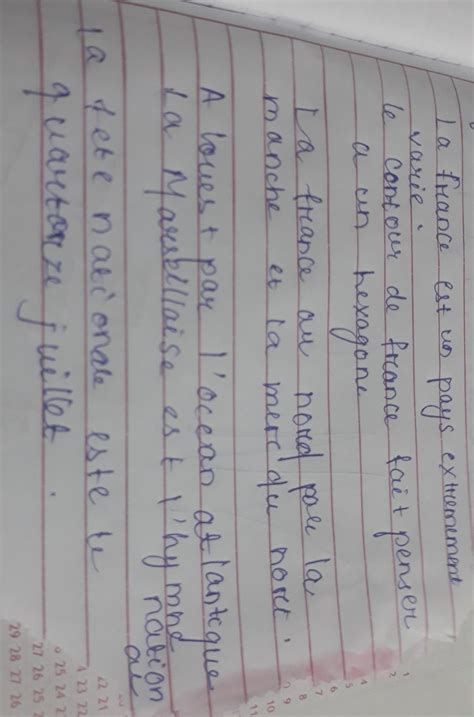 La france est un pays extrêmement
varié.
le contour de france fait penser
a un hexagone
La france au nord par la
manche et la merc du nort.
A louest par l'ocean atlantique
La Marseillaise est l'hymne
nation
al
la fete nationale este le
quartorze juillet.
1
2
3
4
5
6
7
8
9
10
11
21
22 23
24 25
25 26 27
26 27 28 29